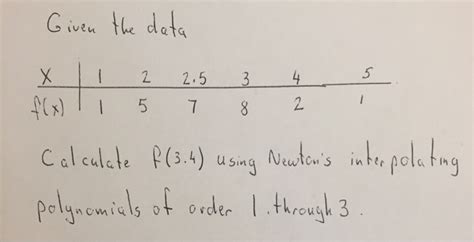 Given the data
x | 1 2 2.5 3 4 5
f(x) | 1 5 7 8 2 1
Calculate f(3.4) using Newton's interpolating
polynomials of order 1 through 3.